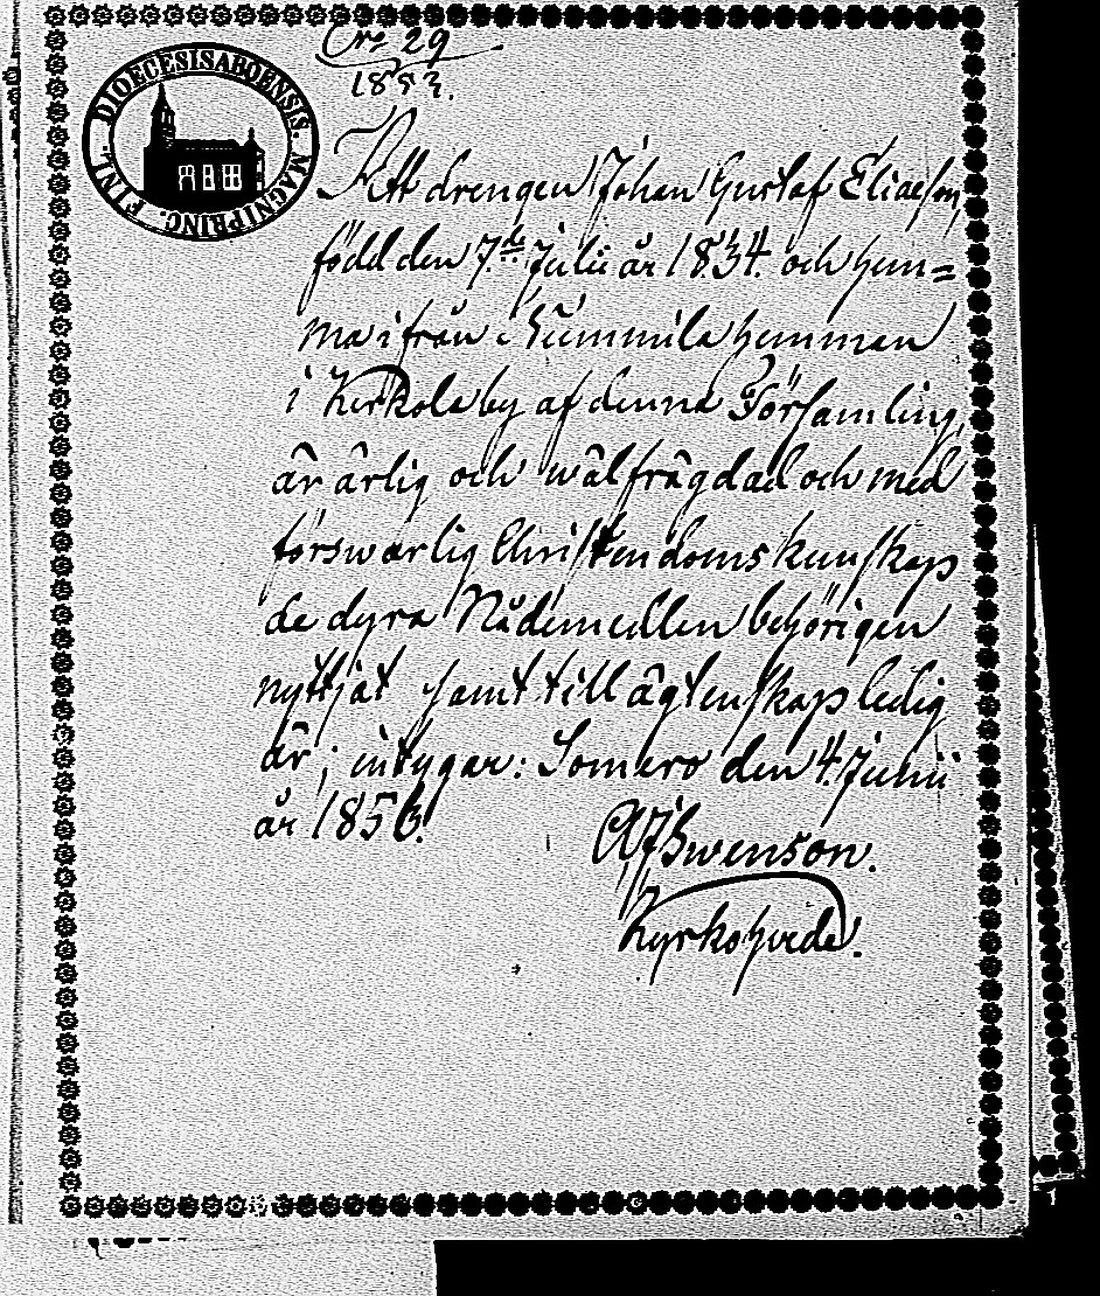 N:o 29
1853.
DIOECESIS ABOENSIS. MAGNI PRINC. FINL.
Att drengen Johan Gustaf Eliaesson,
född den 7:de Julii år 1834. och hem=
ma ifrån Nummila hemman
i Kirkola by af denna Församling,
är ärlig och wälfrägdad och med
förswarlig Christendomskunskap
de dyra Nådemedlen behörigen
nyttjat samt till ägtenskap ledig
är; intygar: Somero den 4. Junii
år 1856.
Swenson.
Kyrkoherde.